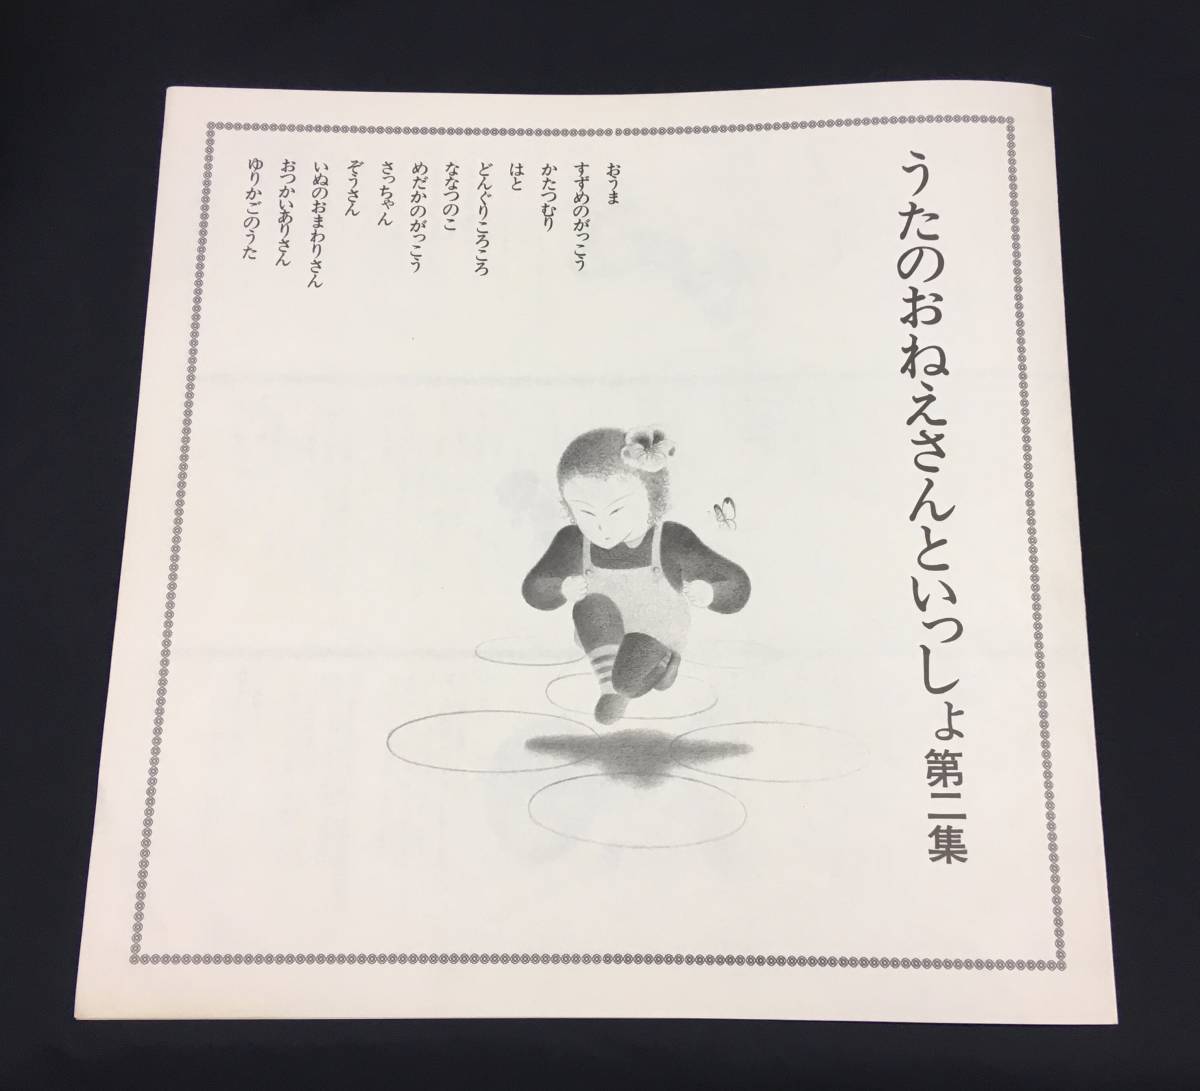 うたのおねえさんといっしょ第二集
おうま
すずめのがっこう
かたつむり
はと
どんぐりころころ
ななつのこ
めだかのがっこう
さっちゃん
ぞうさん
いぬのおまわりさん
おつかいありさん
ゆりかごのうた